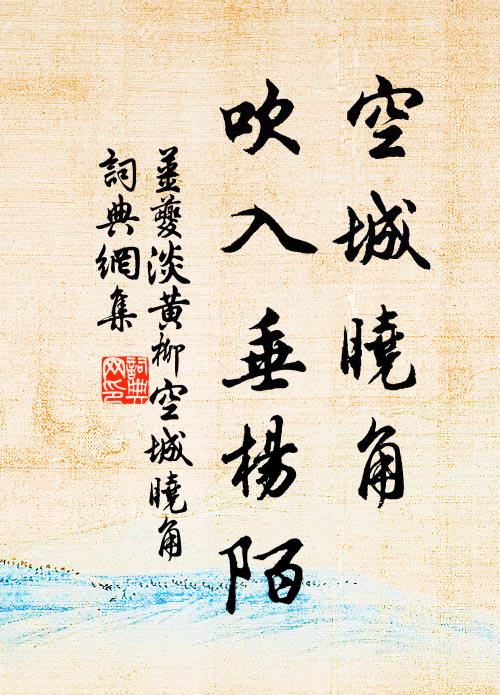 空城曉角
吹入垂楊陌
姜夔淡黃柳空城曉角
詞典網集
詞典
网印